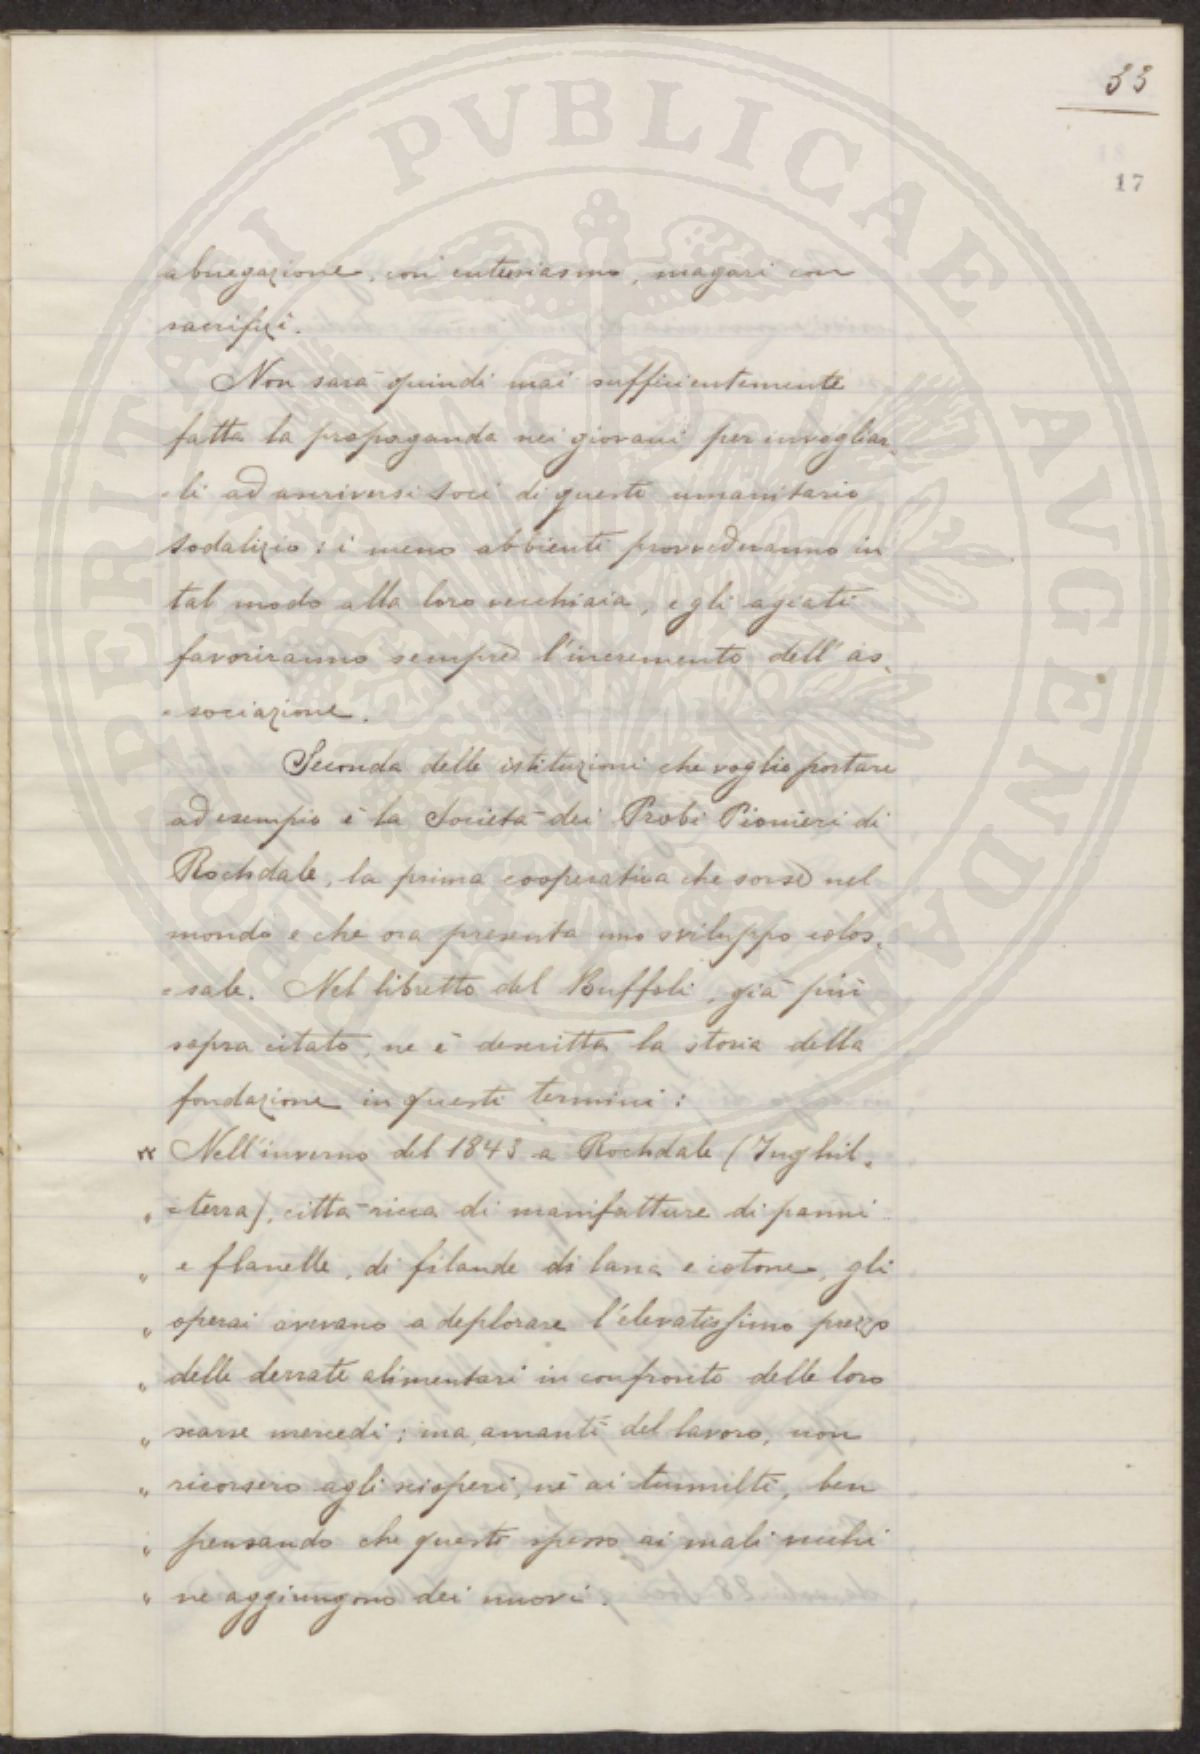 33
17
abnegazione, con entusiasmo, magari con
sacrifizi.
Non sarà quindi mai sufficientemente
fatta la propaganda nei giovani per invogliar-
-li ad ascriversi soci di questo umanitario
sodalizio: i meno abbienti provvederanno in
tal modo alla loro vecchiaia, e gli agiati
favoriranno sempre l'incremento dell'as-
-sociazione.
Seconda delle istituzioni che voglio portare
ad esempio è la Società dei Probi Pionieri di
Rochdale, la prima cooperativa che sorse nel
mondo e che ora presenta uno sviluppo colos-
-sale. Nel libretto del Buffoli, già più
sopra citato, ne è descritta la storia della
fondazione in questi termini:
« Nell'inverno del 1843 a Rochdale (Inghil-
" -terra), città ricca di manifatture di panni
" e flanelle, di filande di lana e cotone, gli
" operai avevano a deplorare l'elevatissimo prezzo
" delle derrate alimentari in confronto delle loro
" scarse mercedi; ma, amanti del lavoro, non
" ricorsero agli scioperi, nè ai tumulti, ben
" pensando che questi spesso ai mali vecchi
" ne aggiungono dei nuovi.
PROSPERITATI PVBLICAE AVGENDAE